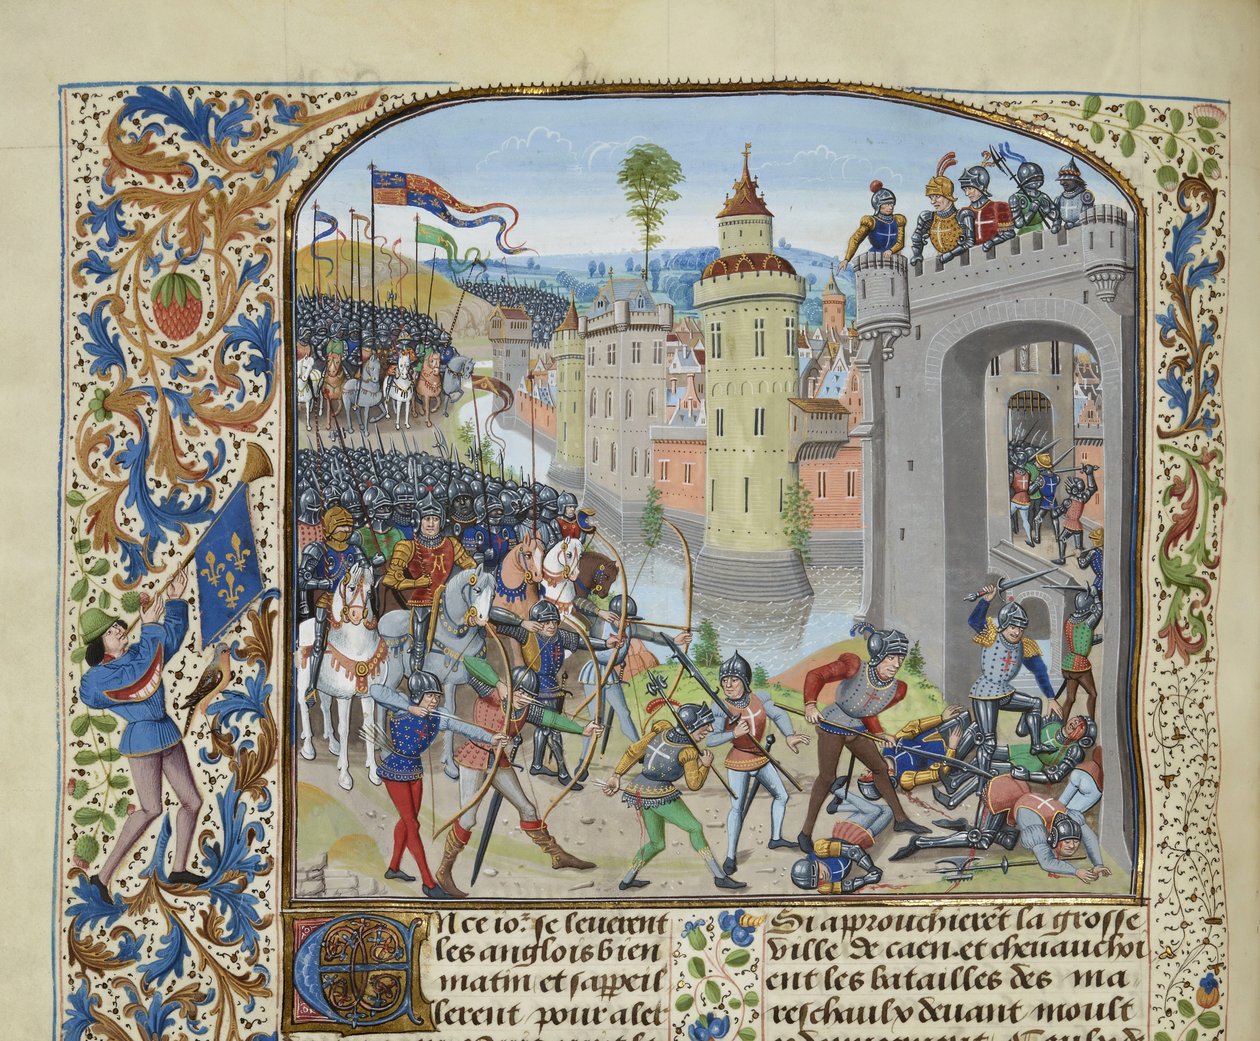 En ce ior̃ se leuerent
les anglois bien
matin et sappeil
lerent pour aler
Si approuchierẽt la grosse
ville de caen et cheuauchoi
ent les batailles des ma
reschaulx deuant moult